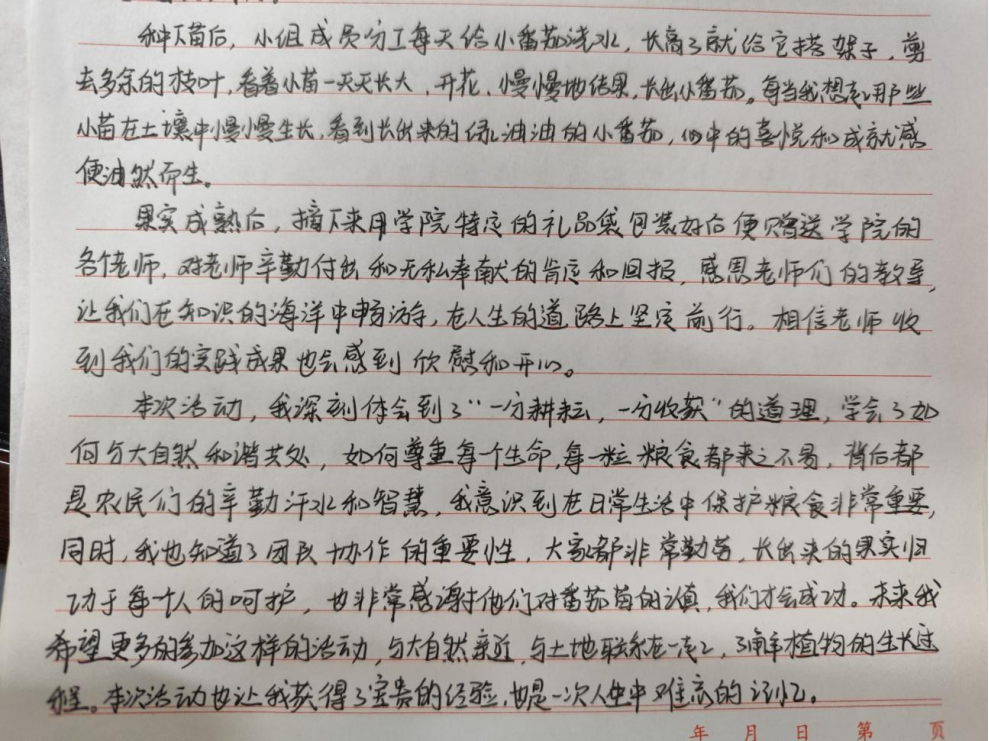 种下苗后，小组成员分工每天给小番茄浇水，长高了就给它搭架子，剪
去多余的枝叶，看着小苗一天天长大，开花，慢慢地结果，长出小番茄。每当我想起用那些
小苗在土壤中慢慢生长，看到长出来的绿油油的小番茄，心中的喜悦和成就感
便油然而生。
果实成熟后，摘下来用学院特定的礼品袋包装好后便赠送学院的
各位老师，对老师辛勤付出和无私奉献的肯定和回报，感恩老师们的教导，
让我们在知识的海洋中畅游，在人生的道路上坚定前行。相信老师收
到我们的实践成果也会感到欣慰和开心。
本次活动，我深刻体会到了“一分耕耘，一分收获”的道理，学会了如
何与大自然和谐共处，如何尊重每个生命，每一粒粮食都来之不易，背后都
是农民们的辛勤汗水和智慧，我意识到在日常生活中保护粮食非常重要，
同时，我也知道了团队协作的重要性，大家都非常勤劳，长出来的果实归
功于每个人的呵护，也非常感谢他们对番茄苗的认真，我们才会成功。未来我
希望更多的参加这样的活动，与大自然亲近，与土地联系在一起，了解植物的生长过
程。本次活动也让我获得了宝贵的经验，也是一次人生中难忘的记忆。
年 月 日 第 页